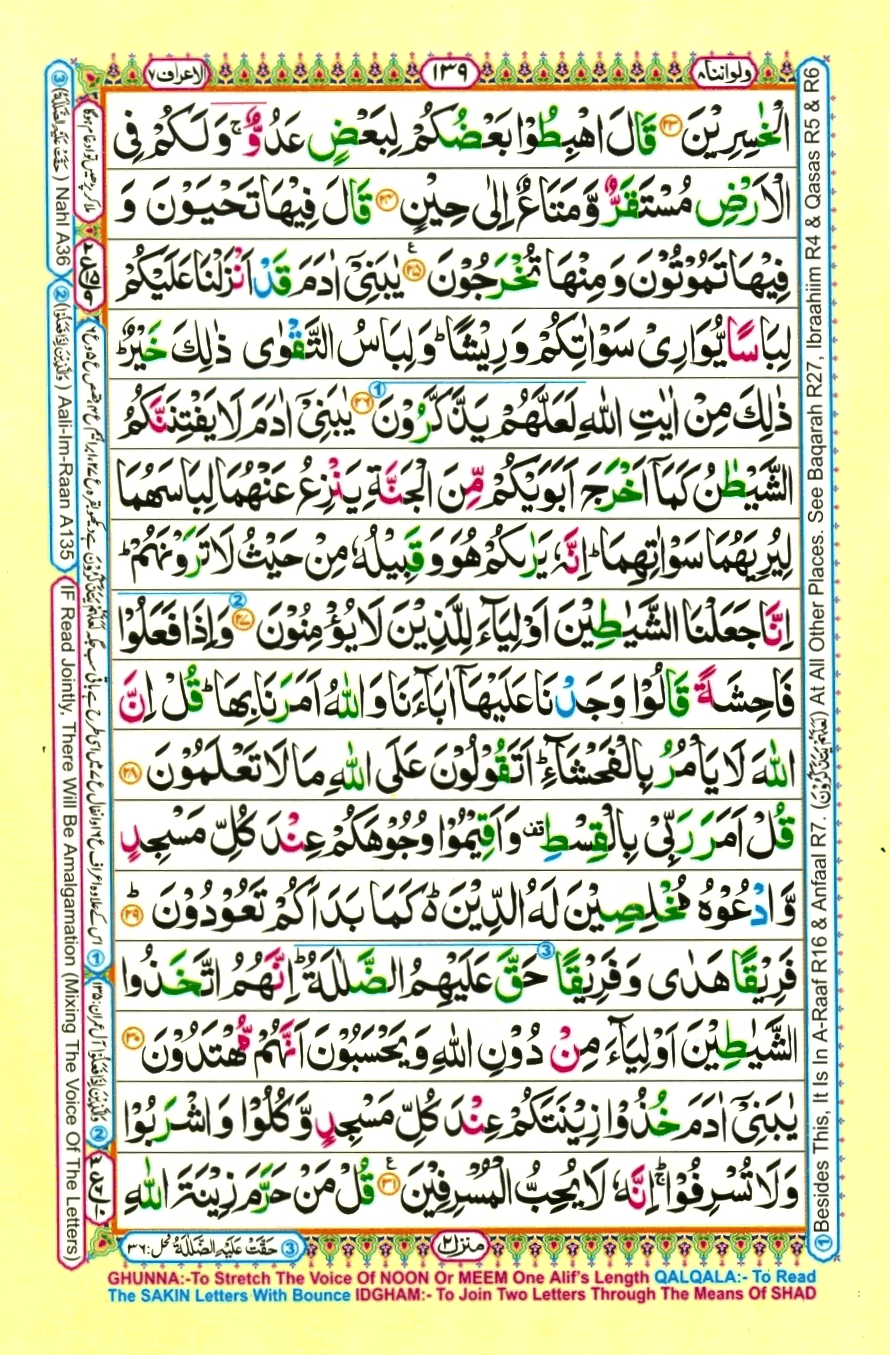 الاعراف٧
١٣٩
ولواننا٨
الْخٰسِرِيْنَ ۝٢٣ قَالَ اهْبِطُوْا بَعْضُكُمْ لِبَعْضٍ عَدُوٌّ ۚ وَ لَكُمْ فِى
الْاَرْضِ مُسْتَقَرٌّ وَّ مَتَاعٌ اِلٰى حِيْنٍ ۝٢٤ قَالَ فِيْهَا تَحْيَوْنَ وَ
فِيْهَا تَمُوْتُوْنَ وَ مِنْهَا تُخْرَجُوْنَ ۝٢٥ ع يٰبَنِىْۤ اٰدَمَ قَدْ اَنْزَلْنَا عَلَيْكُمْ
لِبَاسًا يُّوَارِىْ سَوْاٰتِكُمْ وَ رِيْشًا ؕ وَ لِبَاسُ التَّقْوٰى ذٰلِكَ خَيْرٌ ؕ
ذٰلِكَ مِنْ اٰيٰتِ اللّٰهِ لَعَلَّهُمْ يَذَّكَّرُوْنَ ۝٢٦ ① يٰبَنِىْۤ اٰدَمَ لَا يَفْتِنَنَّكُمُ
الشَّيْطٰنُ كَمَاۤ اَخْرَجَ اَبَوَيْكُمْ مِّنَ الْجَنَّةِ يَنْزِعُ عَنْهُمَا لِبَاسَهُمَا
لِيُرِيَهُمَا سَوْاٰتِهِمَا ؕ اِنَّهٗ يَرٰىكُمْ هُوَ وَ قَبِيْلُهٗ مِنْ حَيْثُ لَا تَرَوْنَهُمْ ؕ
اِنَّا جَعَلْنَا الشَّيٰطِيْنَ اَوْلِيَآءَ لِلَّذِيْنَ لَا يُؤْمِنُوْنَ ۝٢٧ ② وَ اِذَا فَعَلُوْا
فَاحِشَةً قَالُوْا وَجَدْنَا عَلَيْهَاۤ اٰبَآءَنَا وَ اللّٰهُ اَمَرَنَا بِهَا ؕ قُلْ اِنَّ
اللّٰهَ لَا يَاْمُرُ بِالْفَحْشَآءِ ؕ اَتَقُوْلُوْنَ عَلَى اللّٰهِ مَا لَا تَعْلَمُوْنَ ۝٢٨
قُلْ اَمَرَ رَبِّىْ بِالْقِسْطِ قف وَ اَقِيْمُوْا وُجُوْهَكُمْ عِنْدَ كُلِّ مَسْجِدٍ
وَّ ادْعُوْهُ مُخْلِصِيْنَ لَهُ الدِّيْنَ ؕ كَمَا بَدَاَكُمْ تَعُوْدُوْنَ ؕ ۝٢٩
فَرِيْقًا هَدٰى وَ فَرِيْقًا حَقَّ ③ عَلَيْهِمُ الضَّلٰلَةُ ؕ اِنَّهُمُ اتَّخَذُوا
الشَّيٰطِيْنَ اَوْلِيَآءَ مِنْ دُوْنِ اللّٰهِ وَ يَحْسَبُوْنَ اَنَّهُمْ مُّهْتَدُوْنَ ۝٣٠
يٰبَنِىْۤ اٰدَمَ خُذُوْا زِيْنَتَكُمْ عِنْدَ كُلِّ مَسْجِدٍ وَّ كُلُوْا وَ اشْرَبُوْا
وَ لَا تُسْرِفُوْا ۚ اِنَّهٗ لَا يُحِبُّ الْمُسْرِفِيْنَ ۝٣١ ع قُلْ مَنْ حَرَّمَ زِيْنَةَ اللّٰهِ
① Besides This, It Is In A-Raaf R16 & Anfaal R7. (لَعَلَّهُمْ يَذَّكَّرُوْنَ) At All Other Places. See Baqarah R27, Ibraahiim R4 & Qasas R5 & R6
③ (حَقَّتْ عَلَيْهِ الضَّلٰلَةُ) Nahl A36
② (وَالَّذِيْنَ اِذَا فَعَلُوْا) Aali-Im-Raan A135
IF Read Jointly, There Will Be Amalgamation (Mixing The Voice Of The Letters)
② وَالَّذِيْنَ اِذَا فَعَلُوْا آل عمران: ١٣٥
③ حَقَّتْ عَلَيْهِ الضَّلٰلَةُ نحل: ٣٦
منزل٢
GHUNNA:-To Stretch The Voice Of NOON Or MEEM One Alif's Length QALQALA:- To Read
The SAKIN Letters With Bounce IDGHAM:- To Join Two Letters Through The Means Of SHAD